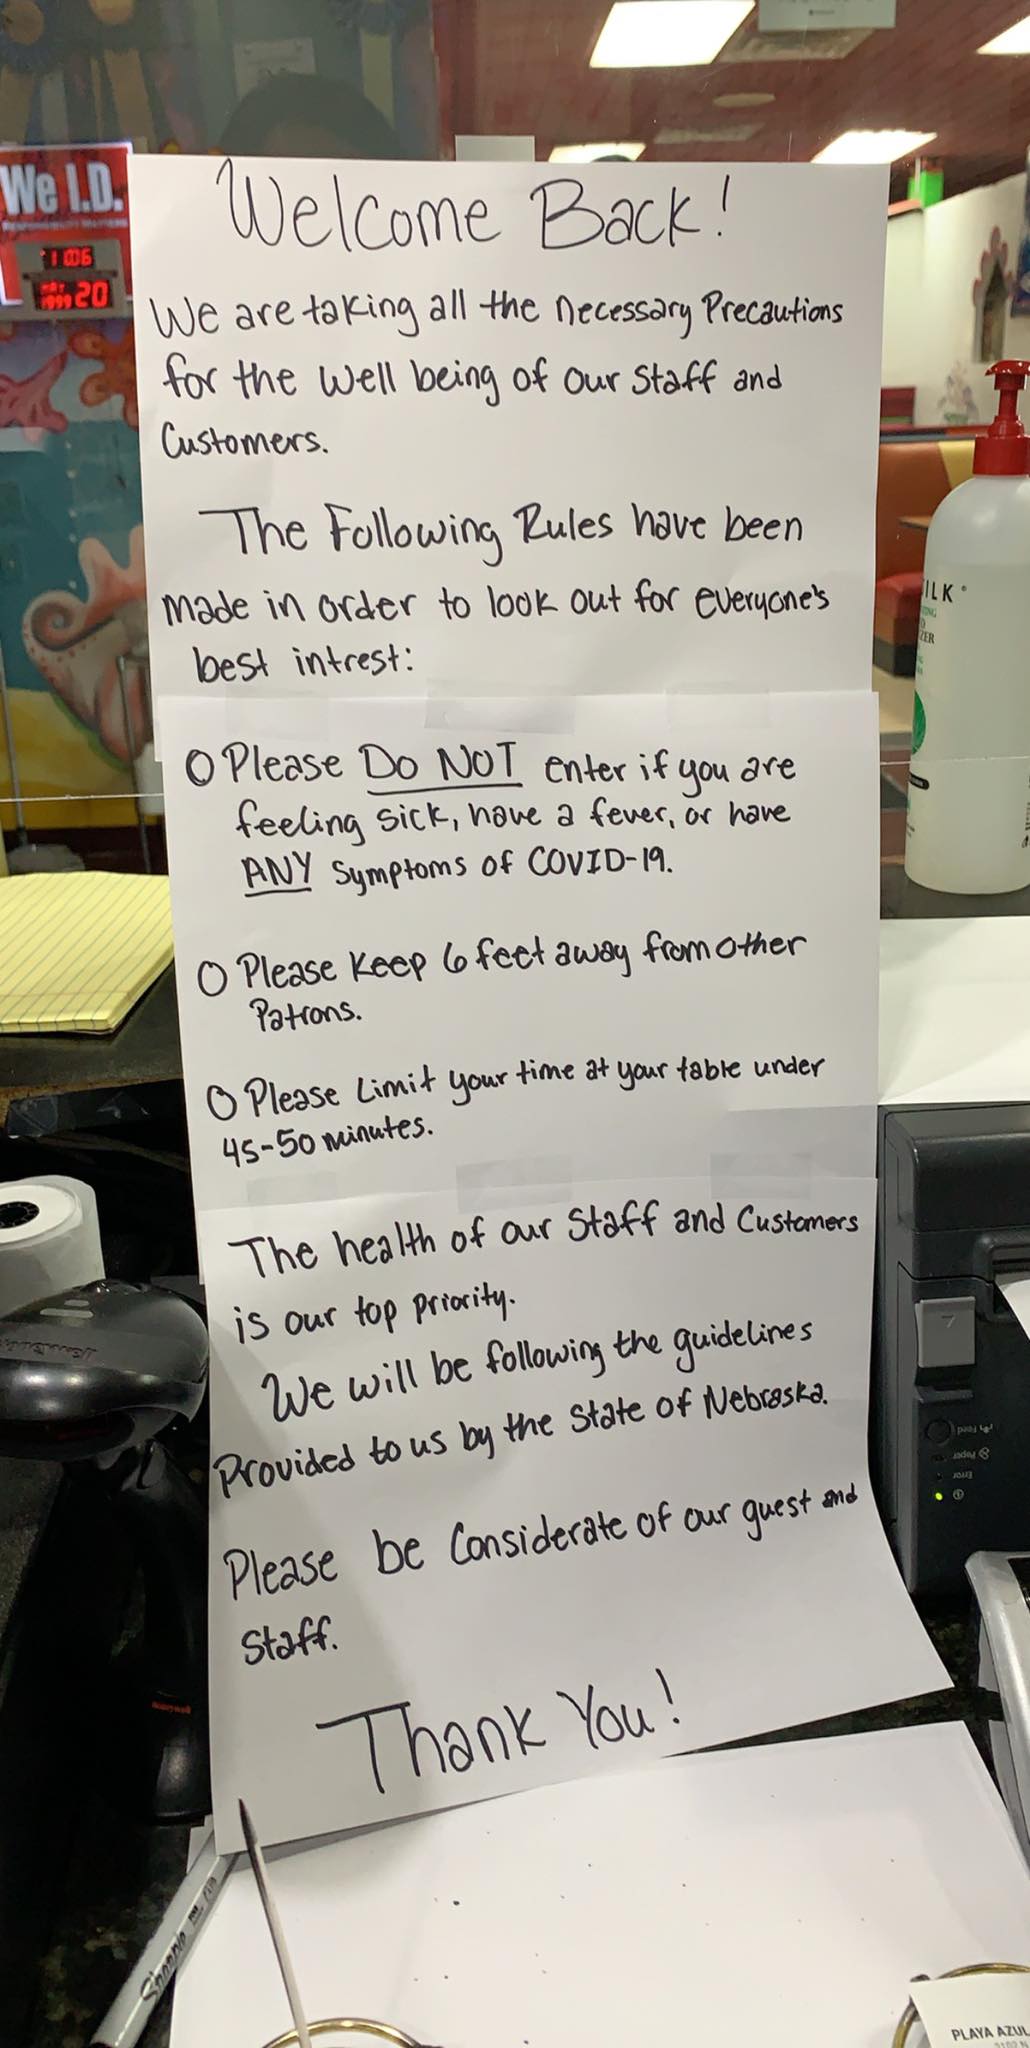 We I.D.
11:06
MAY
1999 20
Welcome Back!
We are taking all the necessary Precautions
for the well being of our Staff and
Customers.
The Following Rules have been
made in order to look out for everyone's
best intrest:
O Please DO NOT enter if you are
feeling sick, have a fever, or have
ANY symptoms of COVID-19.
O Please Keep 6 feet away from other
Patrons.
O Please Limit your time at your table under
45-50 minutes.
The health of our Staff and Customers
is our top priority.
We will be following the guidelines
Provided to us by the State of Nebraska.
Please be Considerate of our guest and
Staff.
Thank You!
ILK
Feed
Paper
Error
Honeywell
Sharpie
PLAYA AZUL